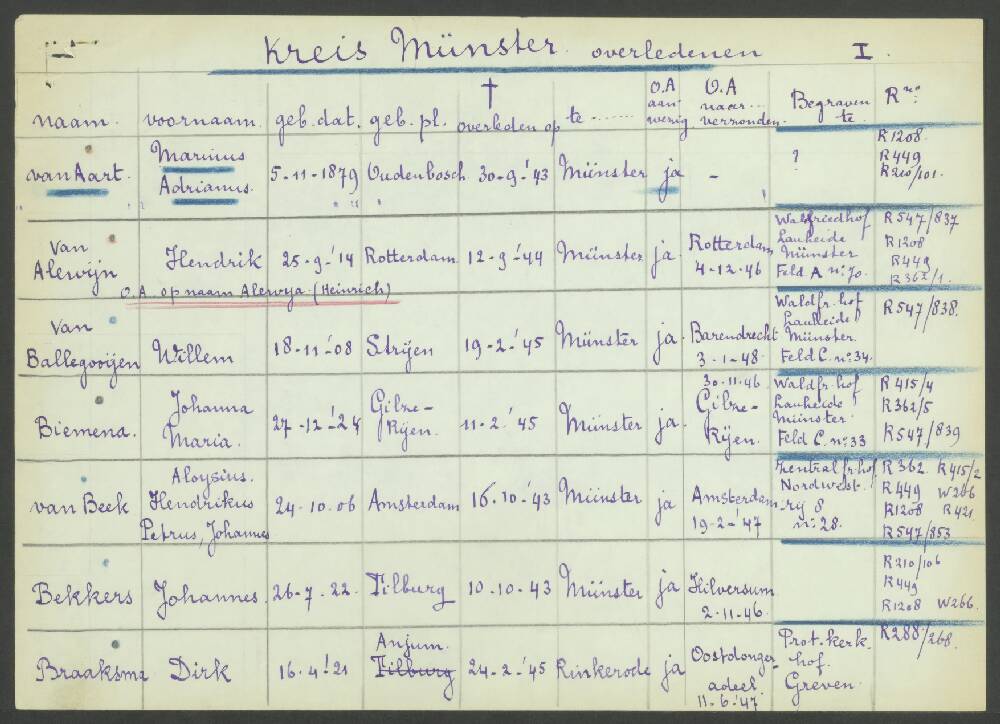 Kreis Münster. overledenen I.
naam. voornaam. geb. dat. geb. pl. † overleden op te ...... O.A aanwezig O.A naar... verzonden. Begraven te. R no:
van Aart. Marinus Adrianus. 5-11-1879 Oudenbosch 30-9-'43 Münster ja - ? R1208. R449 R210/101.
van Alewijn Hendrik 25-9-'14 Rotterdam 12-9-'44 Münster ja. Rotterdam 4-12-46 Waldfriedhof Lauheide Münster Feld A no: 70. R547/837 R1208 R449 R362/1.
O.A. op naam Alewya (Heinrich)
van Ballegooijen Willem 18-11-'08 Strijen 19-2-'45 Münster ja. Barendrecht 3-1-48. Waldfr. hof Lauheide Münster. Feld C. no: 34. R547/838.
Biemena. Johanna Maria. 27-12-'24 Gilze-Rijen. 11-2.'45 Münster ja. 30-11-46 Gilze-Rijen. Waldfr. hof Lauheide Münster. Feld C. no: 33 R415/4 R362/5 R547/839
van Beek Aloysius. Hendrikus Petrus, Johannes 24-10.06 Amsterdam 16-10-'43 Münster ja Amsterdam 19-2-'47 Zentral fr. hof Nordwest. rij 8 no: 28. R362. R415/2 R449 W266 R1208 R421 R547/853
Bekkers Johannes. 26-7.22. Tilburg 10-10-43 Münster ja Hilversum 2-11-46. R210/106 R449 R1208 W266.
Braaksma Dirk 16-4'21 Anjum. Tilburg 24-2-'45 Rinkerode ja Oostdongeradeel. 11-6-'47 Prot. kerkhof. Greven. R288/268.